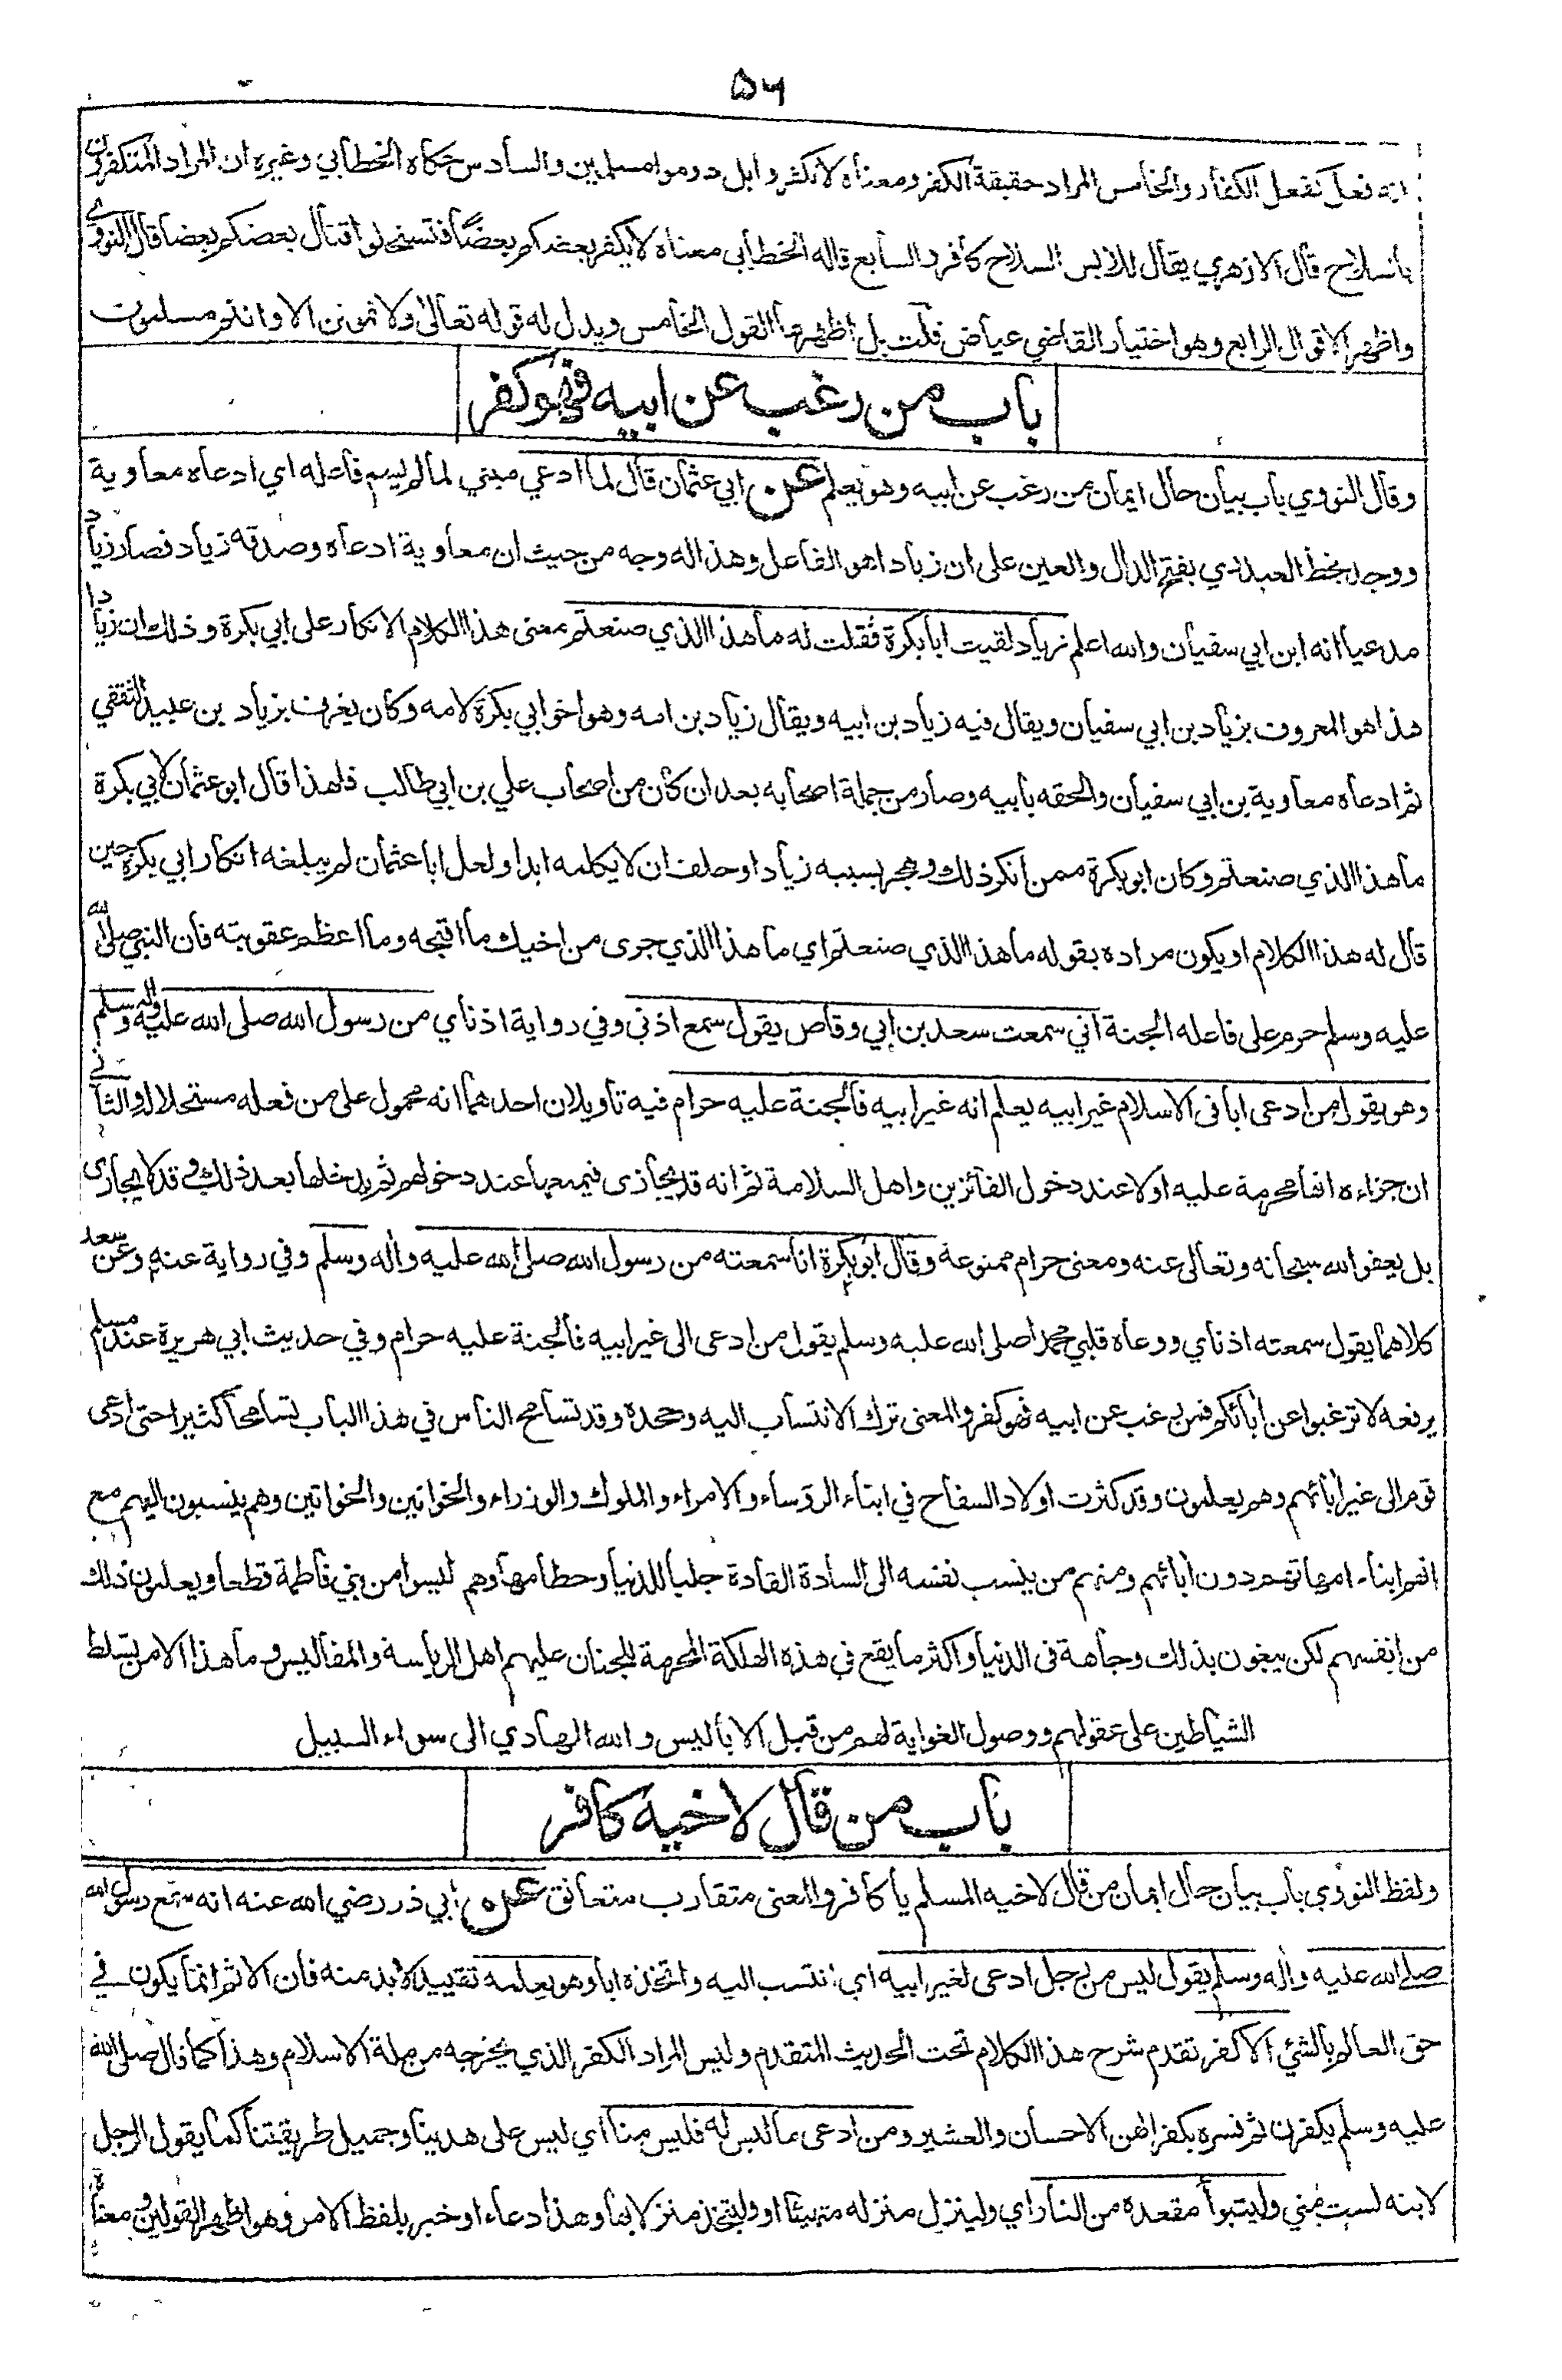 ۵۶
انه فعل كفعل الكفار والخامس المراد حقيقة الكفر ومعناه لا تكفروا بل دوموا مسلمين والسادس حكاه الخطابي وغيره ان المراد المتكفرون
بالسلاح قال الازهري يقال للابس السلاح كافر والسابع قاله الخطابي معناه لا يكفر بعضكم بعضا فتستحلوا قتال بعضكم بعضا قال النووي
واظهر الاقوال الرابع وهو اختيار القاضي عياض قلت بل اظهرها القول الخامس ويدل له قوله تعالى ولا تموتن الا وانتم مسلمون
باب من رغب عن ابيه فهو كفر
وقال النووي باب بيان حال ايمان من رغب عن ابيه وهو يعلم عن ابي عثمان قال لما ادعي مبني لما لم يسم فاعله اي ادعاه معاوية
ووجد بخط العبدري بفتح الدال والعين على ان زيادا هو الفاعل وهذا له وجه من حيث ان معاوية ادعاه وصدقه زياد فصار زياد
مدعيا انه ابن ابي سفيان والله اعلم زياد لقيت ابا بكرة فقلت له ما هذا الذي صنعتم معنى هذا الكلام الانكار على ابي بكرة وذلك ان زيادا
هذا هو المعروف بزياد بن ابي سفيان ويقال فيه زياد بن ابيه ويقال زياد بن امه وهو اخو ابي بكرة لامه وكان يعرف بزياد بن عبيد الثقفي
ثم ادعاه معاوية بن ابي سفيان والحقه بابيه وصار من جملة اصحابه بعد ان كان من اصحاب علي بن ابي طالب فلهذا قال ابو عثمان لابي بكرة
ما هذا الذي صنعتم وكان ابو بكرة ممن انكر ذلك وهجر بسببه زيادا وحلف ان لا يكلمه ابدا ولعل ابا عثمان لم يبلغه انكار ابي بكرة حين
قال له هذا الكلام او يكون مراده بقوله ما هذا الذي صنعتم اي ما هذا الذي جرى من اخيك ما اقبحه وما اعظم عقوبته فان النبي صلى الله
عليه وسلم حرم على فاعله الجنة اني سمعت سعد بن ابي وقاص يقول سمع اذني وفي رواية اذناي من رسول الله صلى الله عليه واله وسلم
وهو يقول من ادعى ابا في الاسلام غير ابيه يعلم انه غير ابيه فالجنة عليه حرام فيه تاويلان احدهما انه محمول على من فعله مستحلا له والثاني
ان جزاءه انها محرمة عليه اولا عند دخول الفائزين واهل السلامة ثم انه قد يجازى فيمنعها عند دخولهم ثم يدخلها بعد ذلك وقد لا يجازى
بل يعفو الله سبحانه وتعالى عنه ومعنى حرام ممنوعة وقال ابو بكرة انا سمعته من رسول الله صلى الله عليه واله وسلم وفي رواية عنه وعن سعد
كلاهما يقول سمعته اذناي ووعاه قلبي محمدا صلى الله عليه وسلم يقول من ادعى الى غير ابيه فالجنة عليه حرام وفي حديث ابي هريرة عند مسلم
يرفعه لا ترغبوا عن ابائكم فمن رغب عن ابيه فهو كفر والمعنى ترك الانتساب اليه وجحده وقد تسامح الناس في هذا الباب تسامحا كثيرا حتى ادعى
قوم الى غير ابائهم وهم يعلمون وقد كثرت اولاد السفاح في ابناء الرؤساء والامراء والملوك والوزراء والخواتين والخواتين وهم ينسبون اليهم مع
انهم ابناء امهاتهم دون ابائهم ومنهم من ينسب نفسه الى السادة القادة جلبا للدنيا وحطامها وهم ليسوا من بني فاطمة قطعا ويعلمون ذلك
من انفسهم لكن يبغون بذلك وجاهة في الدنيا واكثر ما يقع في هذه الهلكة المحرمة للجنان عليهم اهل الرياسة والمفاليس وما هذا الا من تسلط
الشياطين على عقولهم ووصول الغواية لهم من قبل الاباليس والله الهادي الى سواء السبيل
باب من قال لاخيه كافر
ولفظ النووي باب بيان حال ايمان من قال لاخيه المسلم يا كافر والمعنى متقارب متعانق عن ابي ذر رضي الله عنه انه سمع رسول الله
صلى الله عليه واله وسلم يقول ليس من رجل ادعى لغير ابيه اي انتسب اليه واتخذه ابا وهو يعلمه تقييد لا بد منه فان الاثم انما يكون في
حق العالم بالشئ الا كفر تقدم شرح هذا الكلام تحت الحديث المتقدم وليس المراد الكفر الذي يخرجه من ملة الاسلام وهذا كما قال صلى الله
عليه وسلم يكفرن ثم فسره بكفرانهن الاحسان والعشير ومن ادعى ما ليس له فليس منا اي ليس على هدينا وجميل طريقتنا كما يقول الرجل
لابنه لست مني وليتبوأ مقعده من النار اي ولينزل منزله متهيئا او وليتخذ منزلا بها وهذا دعاء او خبر بلفظ الامر وهو اظهر القولين ومعناه